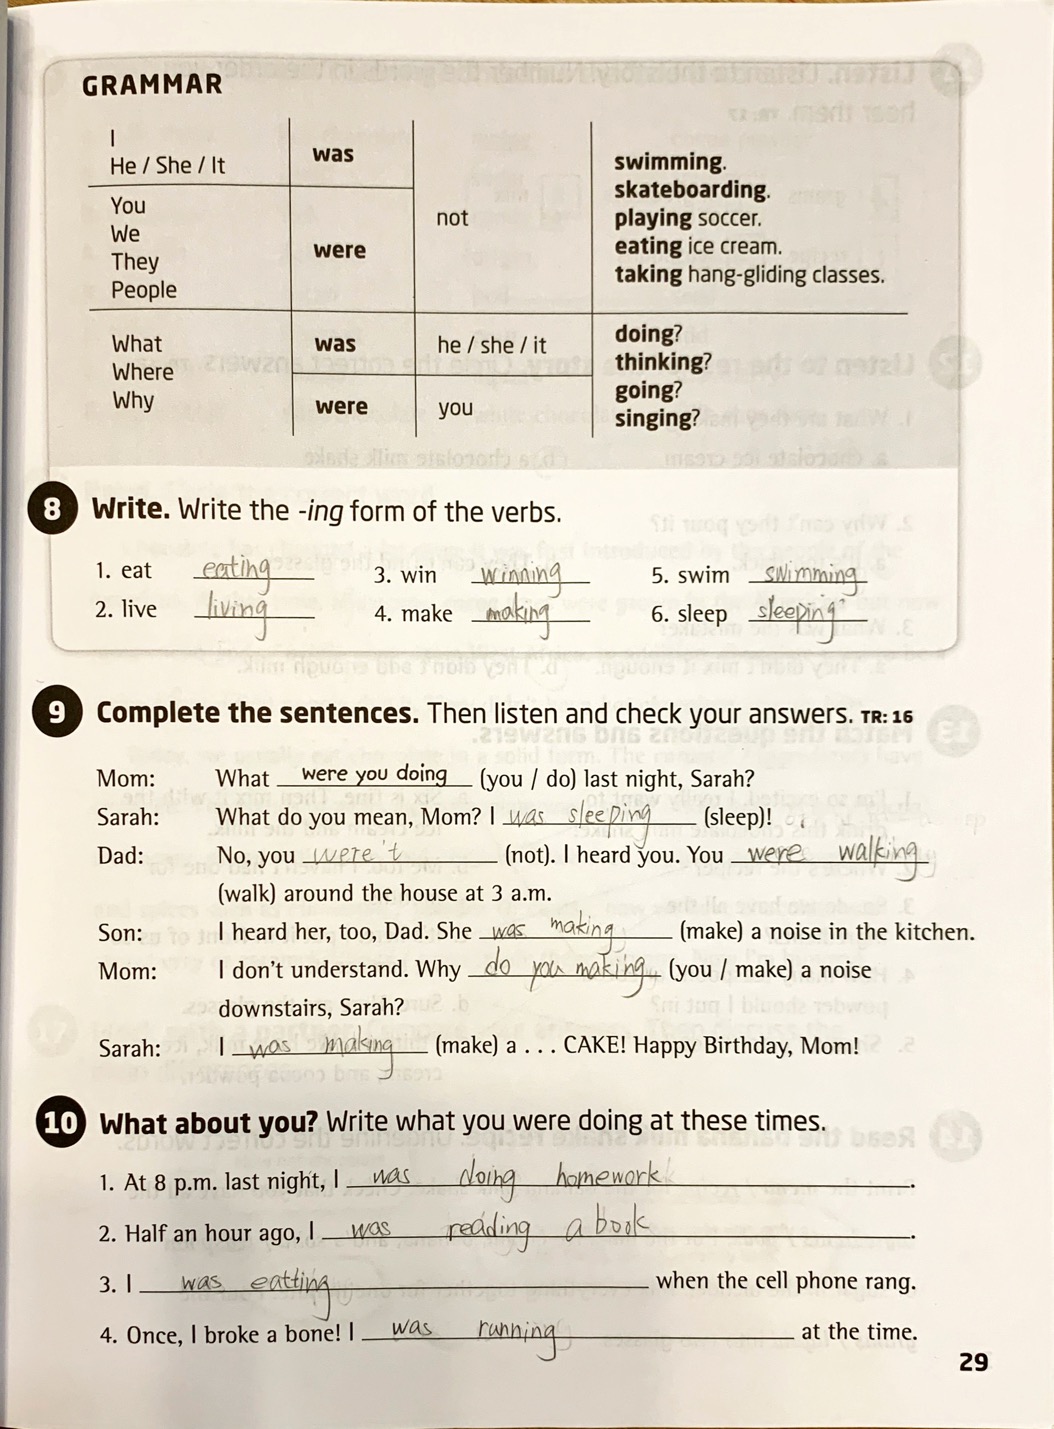 GRAMMAR
I
He / She / It
was
You
We
They
People
were
not
swimming.
skateboarding.
playing soccer.
eating ice cream.
taking hang-gliding classes.
What
Where
Why
was
he / she / it
were
you
doing?
thinking?
going?
singing?
8 Write. Write the -ing form of the verbs.
1. eat eating 3. win winning 5. swim swimming
2. live living 4. make making 6. sleep sleeping
9 Complete the sentences. Then listen and check your answers. TR: 16
Mom: What were you doing (you / do) last night, Sarah?
Sarah: What do you mean, Mom? I was sleeping (sleep)!
Dad: No, you were't (not). I heard you. You were walking
(walk) around the house at 3 a.m.
Son: I heard her, too, Dad. She was making (make) a noise in the kitchen.
Mom: I don't understand. Why do you making (you / make) a noise
downstairs, Sarah?
Sarah: I was making (make) a . . . CAKE! Happy Birthday, Mom!
10 What about you? Write what you were doing at these times.
1. At 8 p.m. last night, I was doing homework.
2. Half an hour ago, I was reading a book.
3. I was eatting when the cell phone rang.
4. Once, I broke a bone! I was running at the time.
29